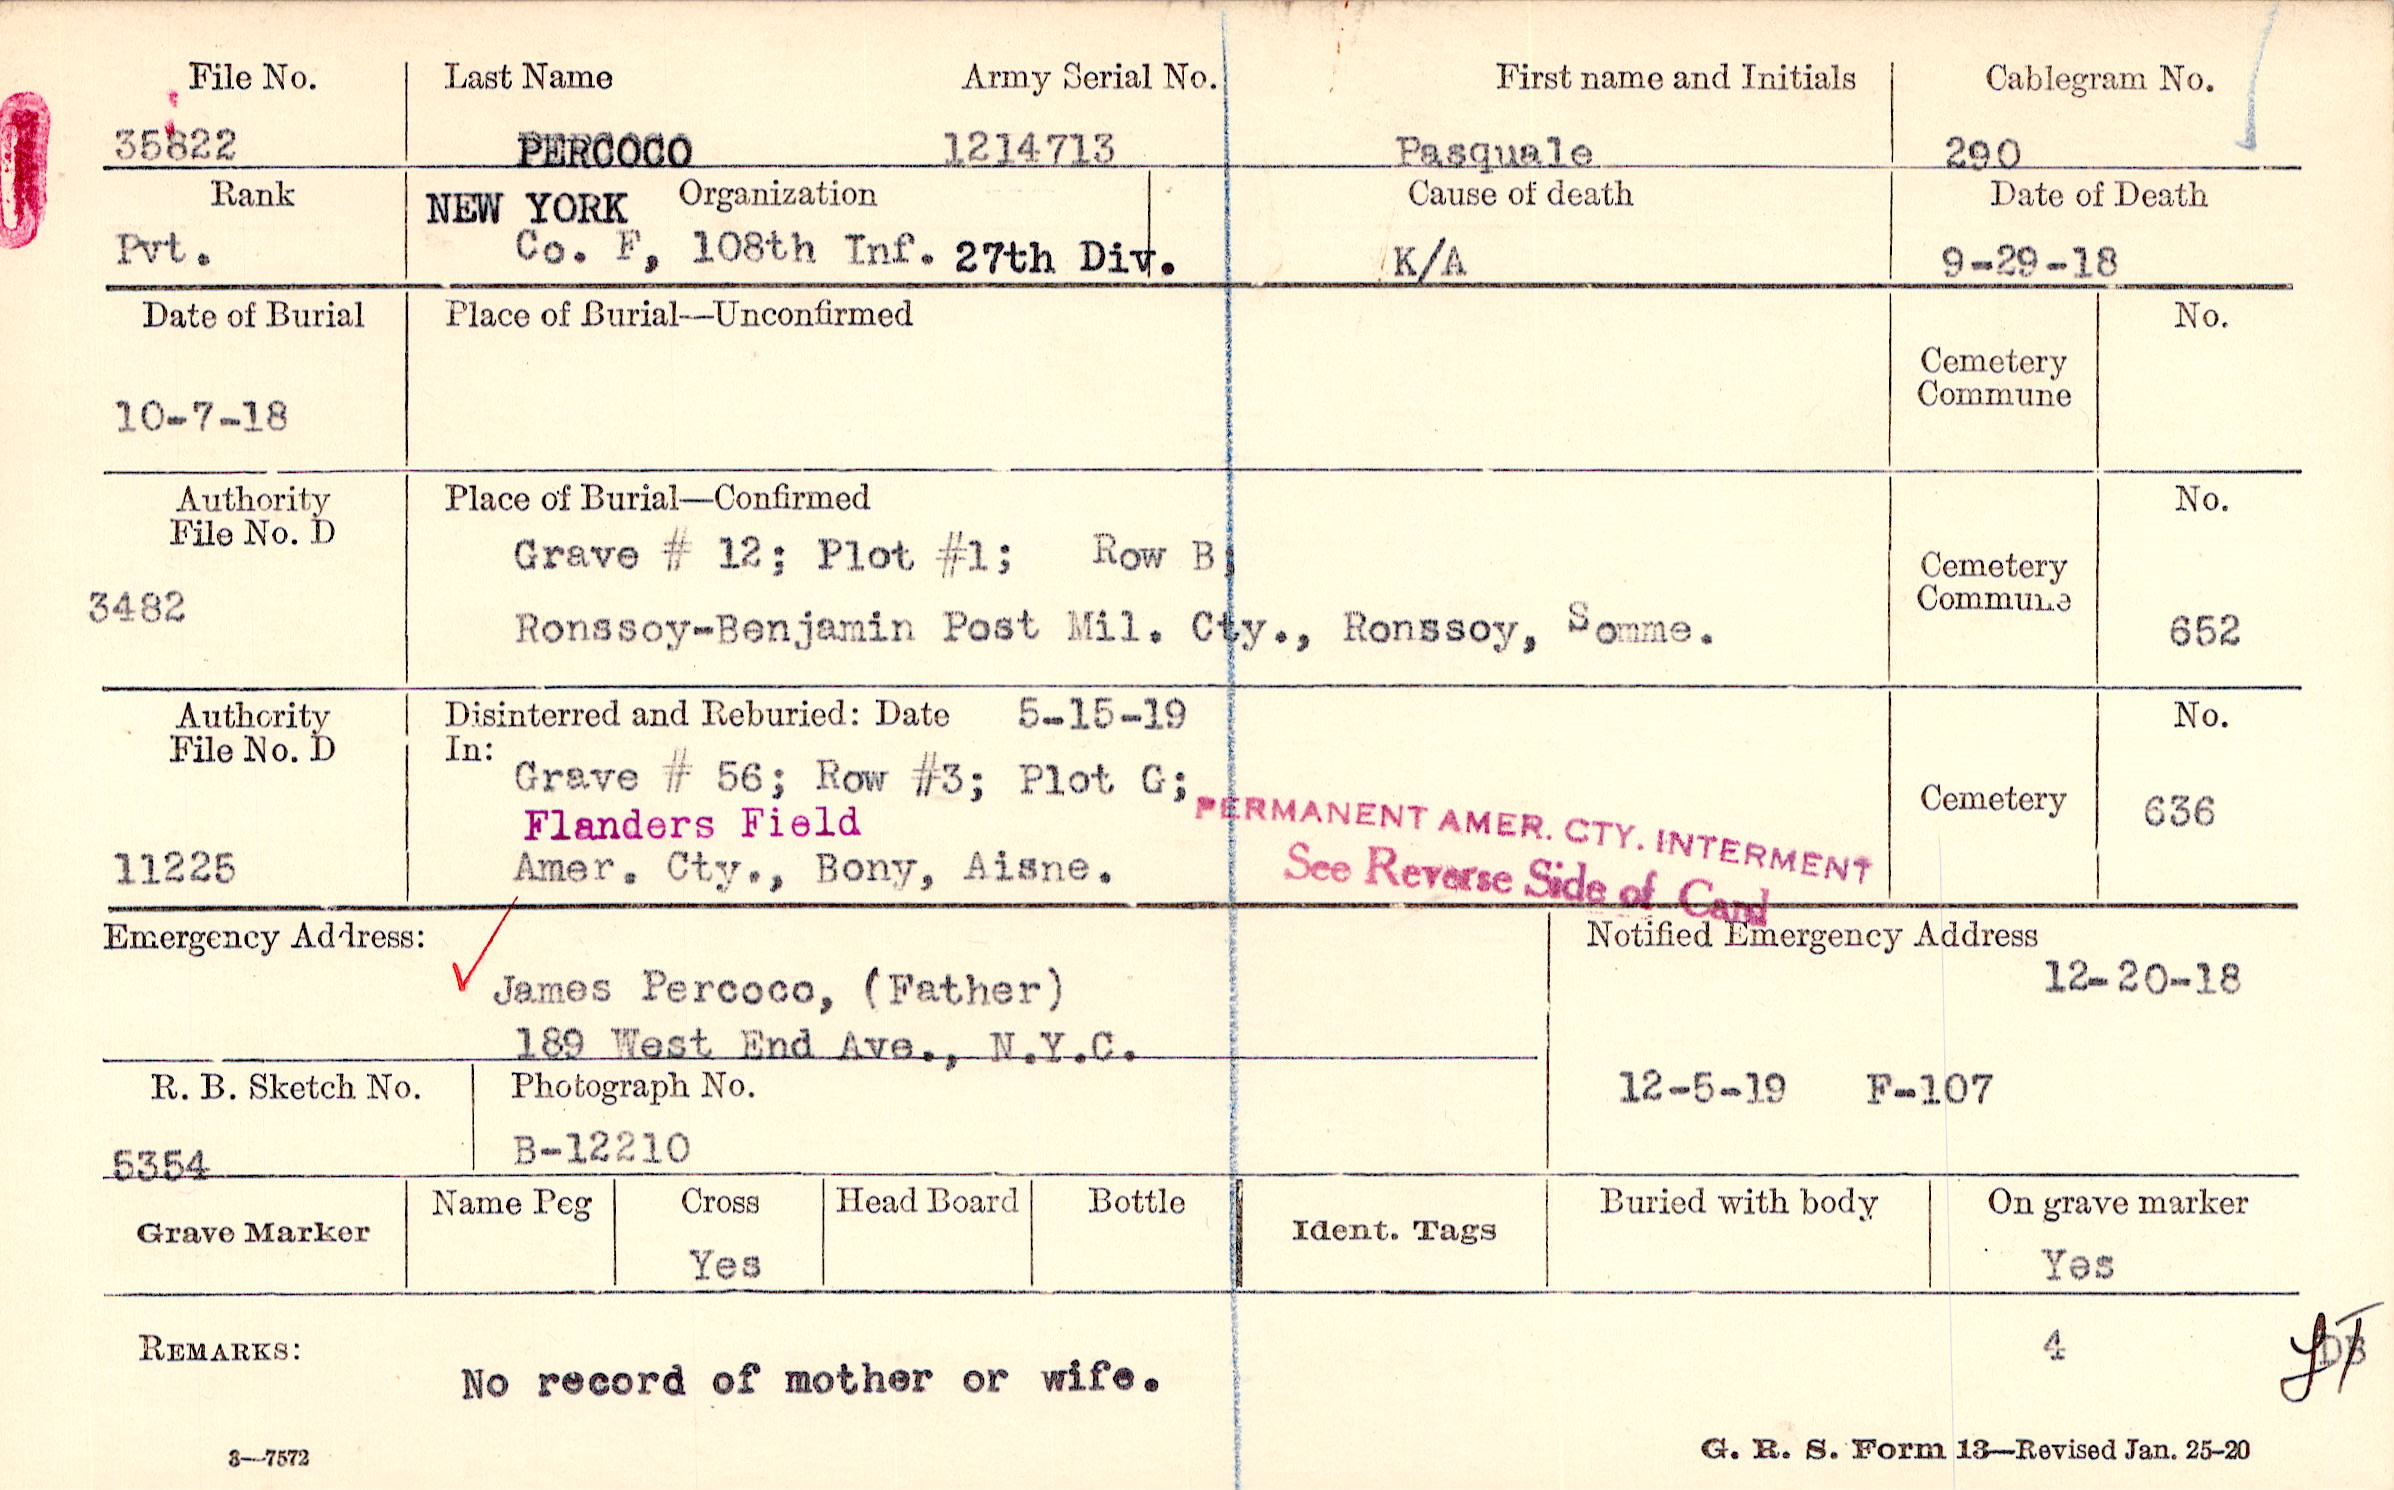 File No. Last Name Army Serial No. First name and Initials Cablegram No.
35822 PERCOCO 1214713 Pasquale 290
Rank NEW YORK Organization Cause of death Date of Death
Pvt. Co. F, 108th Inf. 27th Div. K/A 9-29-18
Date of Burial Place of Burial—Unconfirmed No.
Cemetery
Commune
10-7-18
Authority Place of Burial—Confirmed No.
File No. D
Grave # 12; Plot #1; Row B;
Cemetery
Commune
3482 Ronssoy-Benjamin Post Mil. Cty., Ronssoy, Somme. 652
Authority Disinterred and Reburied: Date 5-15-19 No.
File No. D In:
Grave # 56; Row #3; Plot G;
Flanders Field PERMANENT AMER. CTY. INTERMENT Cemetery 636
11225 Amer. Cty., Bony, Aisne. See Reverse Side of Card
Emergency Address: Notified Emergency Address
James Percoco, (Father) 12-20-18
189 West End Ave., N.Y.C.
R. B. Sketch No. Photograph No. 12-5-19 F-107
5354 B-12210
Grave Marker Name Peg Cross Head Board Bottle Ident. Tags Buried with body On grave marker
Yes Yes
REMARKS: 4
No record of mother or wife.
3—7572 G. R. S. Form 13—Revised Jan. 25-20